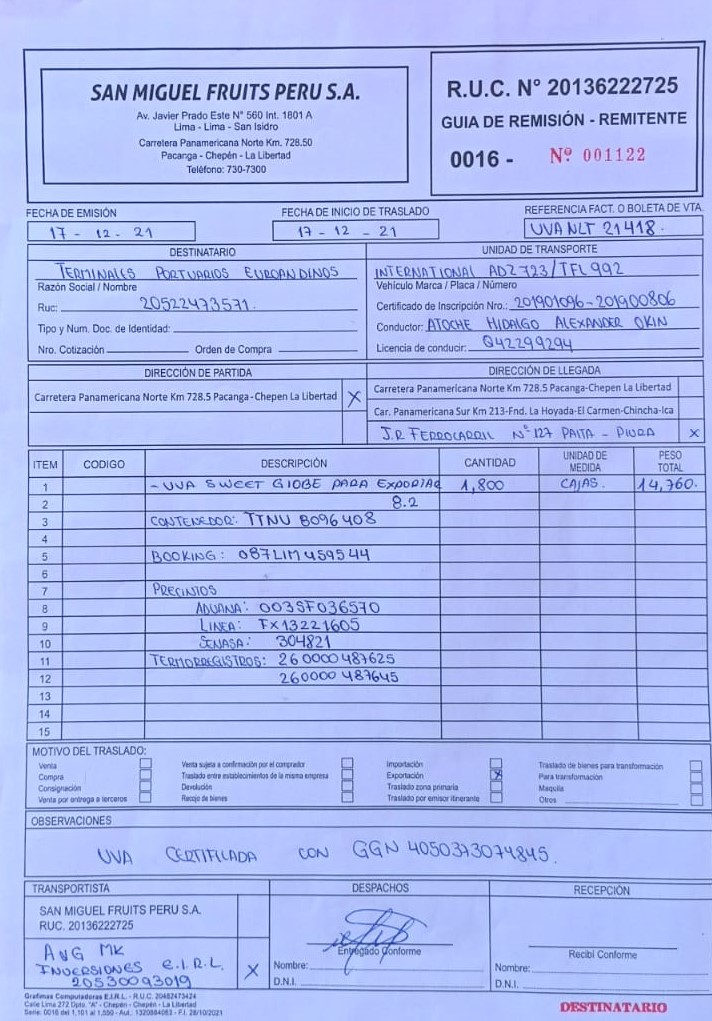 SAN MIGUEL FRUITS PERU S.A.
Av. Javier Prado Este N° 560 Int. 1801 A
Lima - Lima - San Isidro
Carretera Panamericana Norte Km. 728.50
Pacanga - Chepén - La Libertad
Teléfono: 730-7300
R.U.C. N° 20136222725
GUIA DE REMISIÓN - REMITENTE
0016 - Nº 001122
FECHA DE EMISIÓN
17 - 12 - 21
FECHA DE INICIO DE TRASLADO
17 - 12 - 21
REFERENCIA FACT. O BOLETA DE VTA.
UVA NLT 21418.
DESTINATARIO
TERMINALES PORTUARIOS EUROANDINOS
Razón Social / Nombre
Ruc: 20522473571.
Tipo y Num. Doc. de Identidad:
Nro. Cotización Orden de Compra
UNIDAD DE TRANSPORTE
INTERNATIONAL ADZ723/TFL992
Vehículo Marca / Placa / Número
Certificado de Inscripción Nro.: 201901096-201900806
Conductor: ATOCHE HIDALGO ALEXANDER OKIN
Licencia de conducir: Q42299294
DIRECCIÓN DE PARTIDA
Carretera Panamericana Norte Km 728.5 Pacanga-Chepen La Libertad X
DIRECCIÓN DE LLEGADA
Carretera Panamericana Norte Km 728.5 Pacanga-Chepen La Libertad
Car. Panamericana Sur Km 213-Fnd. La Hoyada-El Carmen-Chincha-Ica
J.R FERROCARRIL N°127 PAITA - PIURA X
ITEM CODIGO DESCRIPCIÓN CANTIDAD UNIDAD DE MEDIDA PESO TOTAL
1 - UVA SWEET GLOBE PARA EXPORTAC 1,800 CAJAS. 14,760.
2 8.2
3 CONTENEDOR: TTNU 8096408
4
5 BOOKING: 087LIM459544
6
7 PRECINTOS
8 ADUANA: 003SF036570
9 LINEA: FX13221605
10 SENASA: 304821
11 TERMORREGISTROS: 260000487625
12 260000487645
13
14
15
MOTIVO DEL TRASLADO:
Venta
Compra
Consignación
Venta por entrega a terceros
Venta sujeta a confirmación por el comprador
Traslado entre establecimientos de la misma empresa
Devolución
Recojo de bienes
Importación
Exportación X
Traslado zona primaria
Traslado por emisor itinerante
Traslado de bienes para transformación
Para transformación
Maquila
Otros
OBSERVACIONES
UVA CERTIFICADA CON GGN 4050373074845.
TRANSPORTISTA
SAN MIGUEL FRUITS PERU S.A.
RUC. 20136222725
AVG MK
INVERSIONES E.I.R.L. X
20530093019
DESPACHOS
Entregado Conforme
Nombre:
D.N.I.
RECEPCIÓN
Recibí Conforme
Nombre:
D.N.I.
Grafimas Computadoras E.I.R.L. - R.U.C. 20482473424
Calle Lima 272 Dpto. "A" - Chepén - Chepén - La Libertad
Serie: 0016 del 1,101 al 1,550 - Aut.: 1320884083 - F.I. 28/10/2021
DESTINATARIO